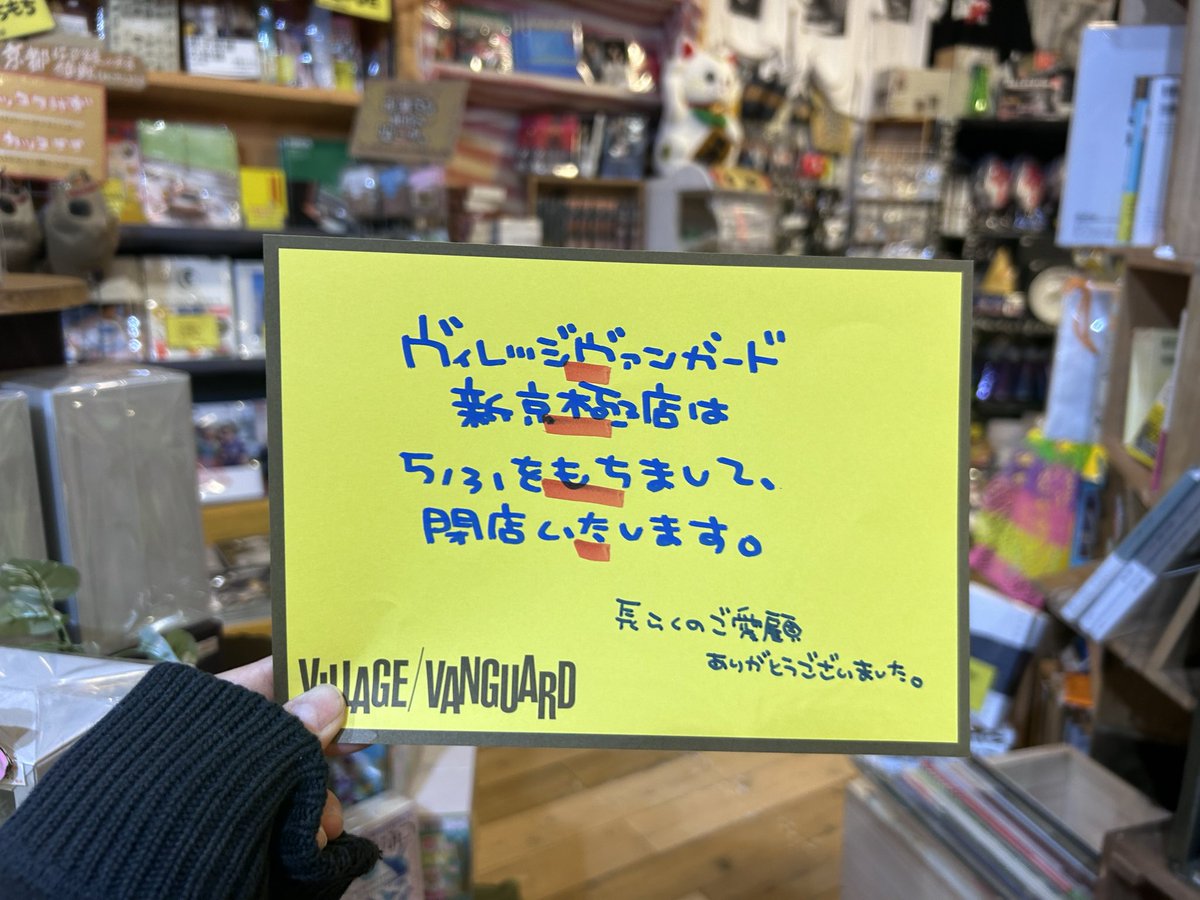 ヴィレッジヴァンガード
新京極店は
5/31をもちまして、
閉店いたします。
長らくのご愛顧
ありがとうございました。
VILLAGE/VANGUARD